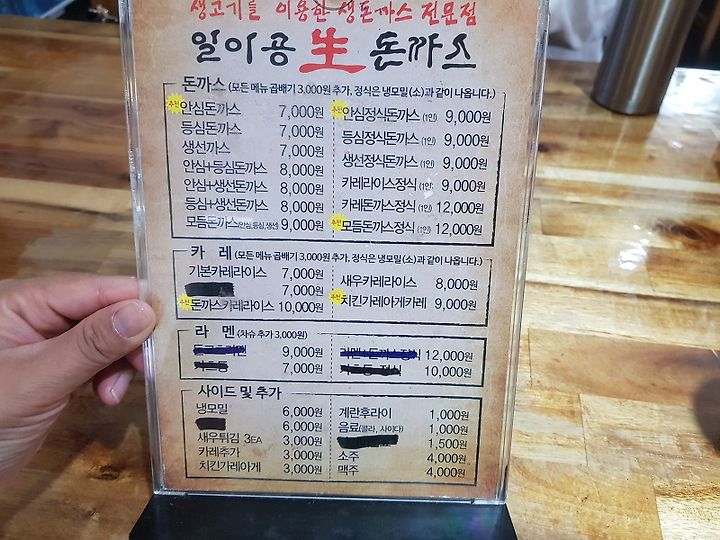 생고기를 이용한 생돈까스 전문점
일이공 生 돈까스
돈까스 (모든 메뉴 곱배기 3,000원 추가, 정식은 냉모밀(소)과 같이 나옵니다.)
추천 안심돈까스 7,000원
등심돈까스 7,000원
생선까스 7,000원
안심+등심돈까스 8,000원
안심+생선돈까스 8,000원
등심+생선돈까스 8,000원
모듬돈까스(안심,등심,생선) 9,000원
추천 안심정식돈까스 (1인) 9,000원
등심정식돈까스 (1인) 9,000원
생선정식돈까스 (1인) 9,000원
카레라이스정식 (1인) 9,000원
카레돈까스정식 (1인) 12,000원
추천 모듬돈까스정식 (1인) 12,000원
카 레 (모든메뉴 곱배기 3,000원 추가, 정식은 냉모밀(소)과 같이 나옵니다.)
기본카레라이스 7,000원
7,000원
추천 돈까스카레라이스 10,000원
새우카레라이스 8,000원
추천 치킨가레아게카레 9,000원
라 멘 (차슈 추가 3,000원)
9,000원
7,000원
12,000원
10,000원
사이드 및 추가
냉모밀 6,000원
6,000원
새우튀김 3EA 3,000원
카레추가 3,000원
치킨가레아게 3,000원
계란후라이 1,000원
음료(콜라, 사이다) 1,000원
1,500원
소주 4,000원
맥주 4,000원